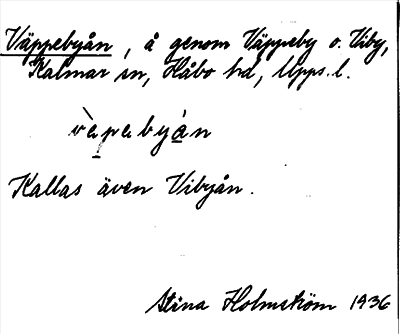 Väppebyån, å genom Väppeby o. Viby,
Kalmar sn, Håbo hd, Upps. l.
vàpabyán
Kallas även Vibyån.
Stina Holmström 1936